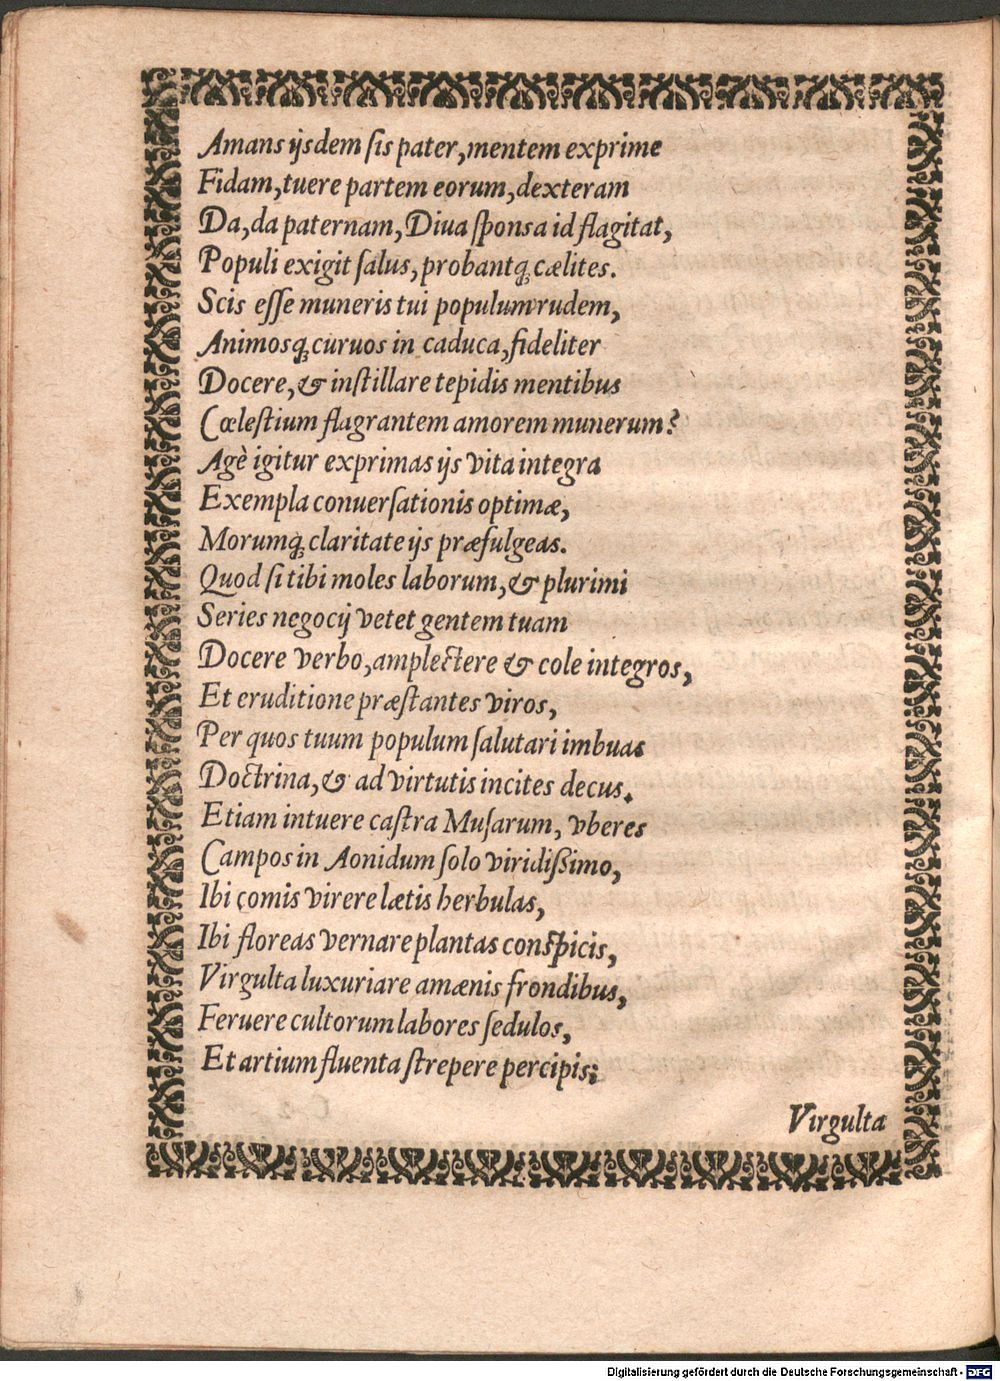 Amans ijsdem ſis pater, mentem exprime
Fidam, tuere partem eorum, dexteram
Da, da paternam, Diua ſponsa id flagitat,
Populi exigit ſalus, probantq́; cælites.
Scis eſſe muneris tui populum rudem,
Animosq́; curuos in caduca, fideliter
Docere, & inſtillare tepidis mentibus
Cœleſtium flagrantem amorem munerum?
Agè igitur exprimas ijs vita integra
Exempla conuerſationis optimæ,
Morumq́; claritate ijs præfulgeas.
Quod ſi tibi moles laborum, & plurimi
Series negocij vetet gentem tuam
Docere verbo, amplectere & cole integros,
Et eruditione præſtantes viros,
Per quos tuum populum ſalutari imbuas
Doctrina, & ad virtutis incites decus.
Etiam intuere caſtra Muſarum, vberes
Campos in Aonidum ſolo viridißimo,
Ibi comis virere lætis herbulas,
Ibi floreas vernare plantas conſpicis,
Virgulta luxuriare amænis frondibus,
Feruere cultorum labores ſedulos,
Et artium fluenta ſtrepere percipis;
Virgulta
Digitalisierung gefördert durch die Deutsche Forschungsgemeinschaft - DFG